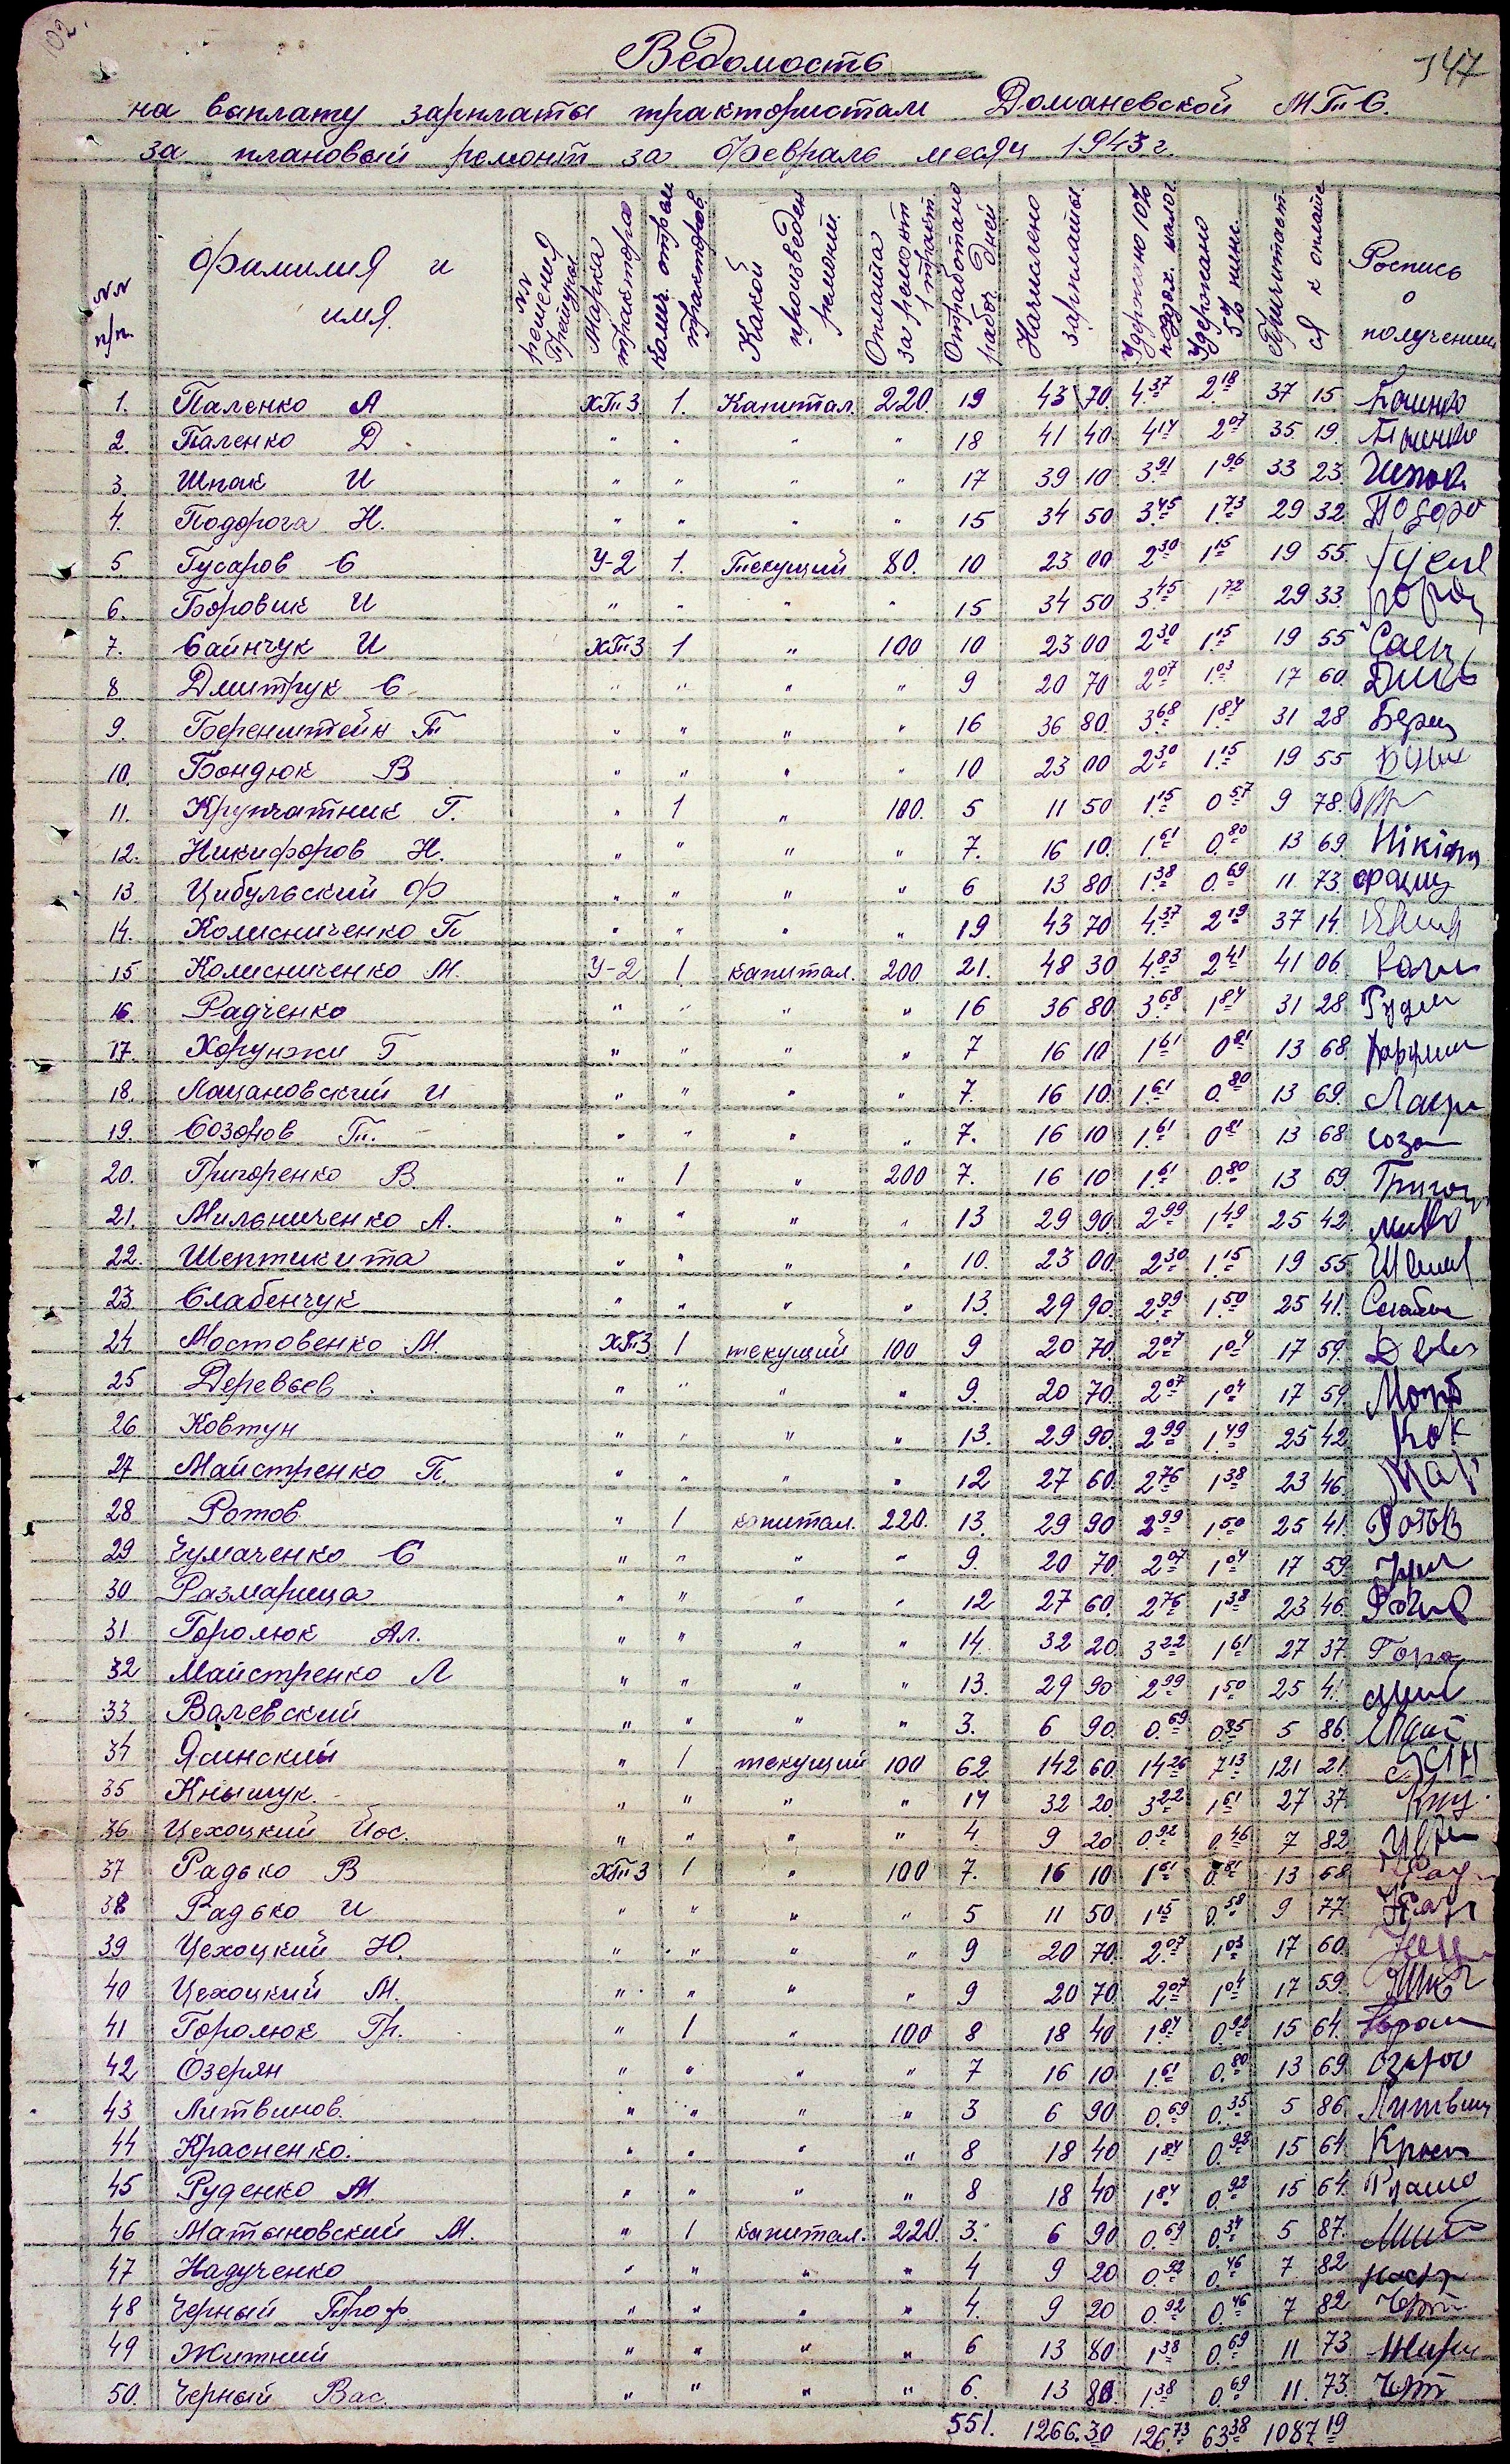 102.
147
Ведомость
на выплату зарплаты трактористам Доманевской МТС.
за плановый ремонт за Февраль месяц 1943 г.
№№ п/п. Фамилия и имя. №№ решения Марка трактора Колич. отрем тракторов. Какой произведен ремонт. Оплата за ремонт 1 тракт. Отработано рабоч. дней Начислено зарплаты. Удержано 10% подох. налог. Удержано 5% Причитается к оплате Роспись о получении
1. Паленко А ХТЗ 1. Капитал. 220. 19 43 70. 4.37 2.18 37 15
2. Паленко Д " " " " 18 41 40 4.14 2.07 35. 19.
3. Шпак И " " " " 17 39 10 3.91 1.96 33 23
4. Подорога Н. " " " " 15 34 50 3.45 1.73 29 32
5. Гусаров С У-2 1. Текущий 80. 10 23 00 2.30 1.15 19 55.
6. Боровик И " " " " 15 34 50 3.45 1.72 29 33
7. Сайнчук И ХТЗ 1 " 100 10 23 00 2.30 1.15 19 55
8 Дмитрук С. " " " " 9 20 70 2.07 1.03 17 60
9. Беренштейн Т " " " " 16 36 80. 3.68 1.84 31 28
10. Бондюк В " " " " 10 23 00 2.30 1.15 19 55
11. Крупчатник Г. " 1 " 100. 5 11 50 1.15 0.57 9 78.
12. Никифоров Н. " " " " 7. 16 10. 1.61 0.80 13 69.
13. Цибульский Ф " " " " 6 13 80 1.38 0.69 11. 73.
14. Колисниченко П " " " " 19 43 70 4.37 2.19 37 14.
15 Колисниченко М. У-2 1 капитал. 200 21. 48 30 4.83 2.41 41 06.
16. Радченко " " " " 16 36 80 3.68 1.84 31 28
17. Хорунжи Г " " " " 7 16 10 1.61 0.81 13 68
18. Лацановский И " " " " 7. 16 10. 1.61 0.80 13 69.
19. Созонов П. " " " " 7. 16 10 1.61 0.81 13 68
20. Григоренко В. " 1 " 200 7. 16 10 1.61 0.80 13 69
21. Мильниченко А. " " " " 13 29 90. 2.99 1.49 25 42.
22. Шептикита " " " " 10. 23 00. 2.30 1.15 19 55
23. Слабенчук " " " " 13. 29 90. 2.99 1.50 25 41.
24 Мостовенко М. ХТЗ 1 текущий 100 9 20 70. 2.07 1.04 17 59.
25 Деревьев " " " " 9. 20 70. 2.07 1.04 17 59.
26 Ковтун " " " " 13. 29 90. 2.99 1.49 25 42
27 Майстренко П. " " " " 12 27 60. 2.76 1.38 23 46.
28 Ротов " 1 капитал. 220. 13. 29 90 2.99 1.50 25 41. Ротов
29 Чумаченко С " " " " 9. 20 70. 2.07 1.04 17 59.
30 Размарица " " " " 12 27 60. 2.76 1.38 23 46.
31 Горолюк Ал. " " " " 14. 32 20 3.22 1.61 27 37.
32 Майстренко Л " " " " 13. 29 90 2.99 1.50 25 41
33 Валевский " " " " 3. 6 90. 0.69 0.35 5 86.
34 Ясинский " 1 текущий 100 62 142 60. 14.26 7.13 121 21.
35 Кнышук. " " " " 14 32 20. 3.22 1.61 27 37
36 Цехоцкий Йос. " " " " 4. 9 20 0.92 0.46 7 82
37 Радько В ХТЗ 1 " 100 7. 16 10 1.61 0.81 13 68
38 Радько И " " " " 5 11 50. 1.15 0.58 9 77
39 Цехоцкий Ю. " " " " 9 20 70. 2.07 1.03 17 60
40 Цехоцкий М. " " " " 9 20 70. 2.07 1.04 17 59.
41 Горолюк Гр. " 1 " 100 8 18 40 1.84 0.92 15 64.
42 Озерян " " " " 7 16 10 1.61 0.80 13 69
43 Литвинов. " " " " 3 6 90 0.69 0.35 5 86
44 Красненко. " " " " 8 18 40 1.84 0.92 15 64
45 Руденко М. " " " " 8 18 40 1.84 0.92 15 64.
46 Матыновский М. " 1 капитал. 220. 3. 6 90 0.69 0.34 5 87.
47 Надученко " " " " 4 9 20 0.92 0.46 7 82
48 Черный Проф. " " " " 4. 9 20 0.92 0.46 7 82
49 Житний " " " " 6 13 80 1.38 0.69 11 73
50. Черный Вас. " " " " 6. 13 80. 1.38 0.69 11. 73
551. 1266.30 126.73 63.38 1087.19